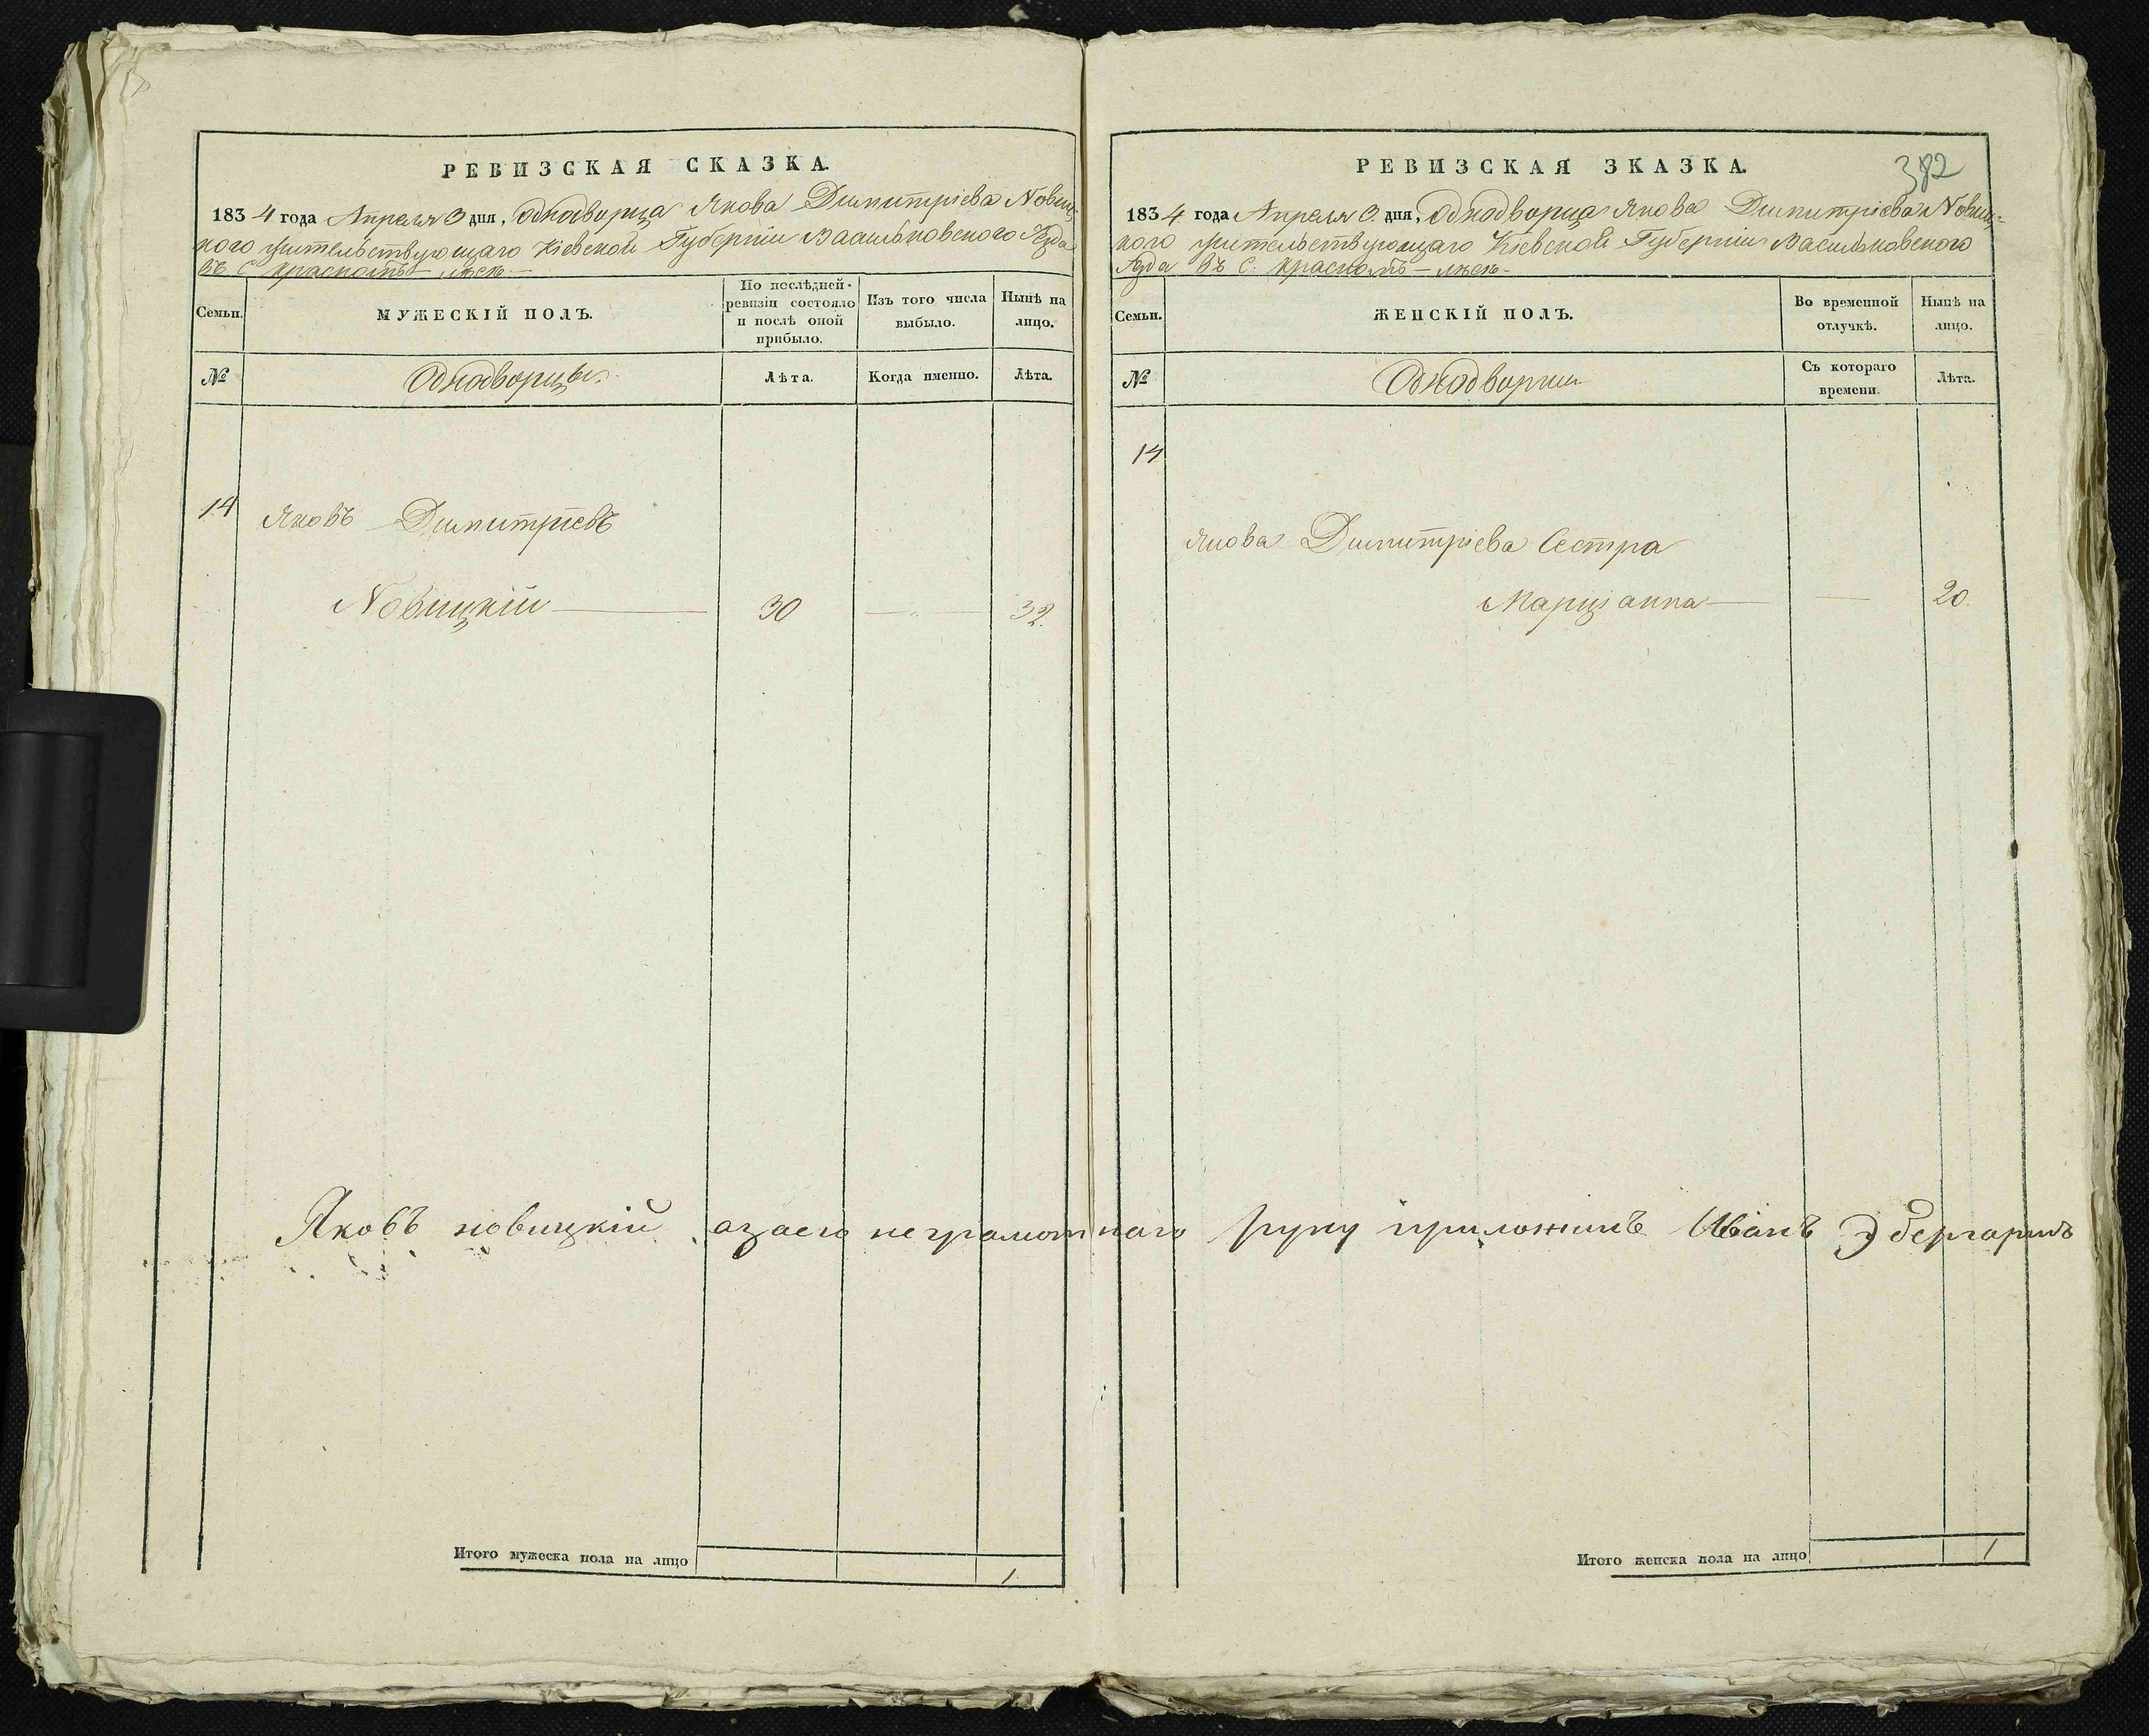 РЕВИЗСКАЯ СКАЗКА.
1834 года Апреля 3 дня, Однодворца Якова Димитріева Новиц-
кого жительствующаго Кіевской Губерніи Васильковского Уезда
въ С. Красномъ лѣсѣ
Семьи.
МУЖЕСКІЙ ПОЛЪ.
По послѣдней
ревизіи состояло
и послѣ оной
прибыло.
Изъ того числа
выбыло.
Нынѣ на
лицо.
№
Однодворцы.
Лѣта.
Когда именно.
Лѣта.
14
Яковъ Димитріевъ
Новицкій — 30 — 32.
Яковъ новицкій азаего неграмотнаго руку приложилъ Иванъ
Итого мужеска пола на лицо
1.
382
РЕВИЗСКАЯ ЗКАЗКА.
1834 года Апреля 3. дня, Однодворца Якова Димитріева Новиц-
кого жительствующаго Кіевской Губерніи Васильковского
Уезда въ С. Красномъ — лѣсѣ
Семьи.
ЖЕНСКІЙ ПОЛЪ.
Во временной
отлучкѣ.
Нынѣ на
лицо.
№
Однодворки
Съ котораго
времени.
Лѣта.
14
Якова Димитріева Сестра
Марціанна — — 20.
Итого женска пола на лицо
1